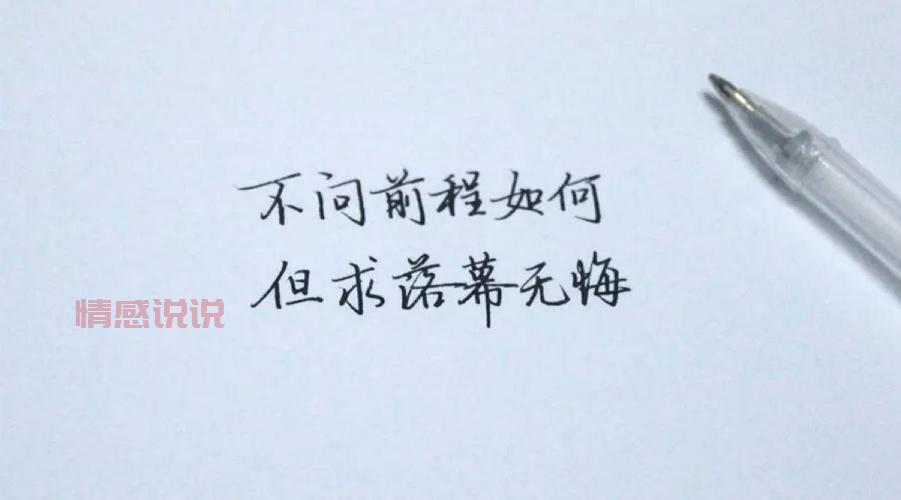 不问前程如何
但求落幕无悔
情感说说